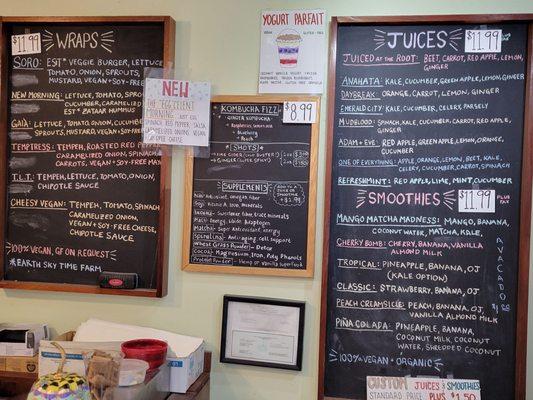 11.99
WRAPS
SORO: EST* VEGGIE BURGER, LETTUCE
TOMATO, ONION, SPROUTS,
MUSTARD, VEGAN + SOY-FREE
NEW MORNING: LETTUCE, TOMATO, SPROUTS
CUCUMBER, CARAMELIZED ONION
+ EST* ZATAAR HUMMUS
GAIA: TOMATO, ONION, CUCUMBER,
SPROUTS, MUSTARD, VEGAN
TEMPTRESS: TEMPEH, ROASTED RED PEPPER
CARAMELIZED ONION, SPINACH
VEGAN + SOY-FREE
T.L.T: TEMPEH, LETTUCE, TOMATO, ONION,
CHIPOTLE SAUCE
CHEESY VEGAN: TEMPEH, TOMATO, SPINACH,
CARAMELIZED ONION,
VEGAN + SOY-FREE CHEESE,
CHIPOTLE SAUCE
100% VEGAN, GF ON REQUEST
*EARTH SKY TIME FARM
NEW
THE "EGG"CELENT
MORNING
RED PEPPER
CARAMELIZED ONIONS
YOGURT PARFAIT
KOMBUCHA FIZZ
$8.99
+ GINGER KOMBUCHA
+ Blueberry
+ Peach
*(SHOTS)*
SUPPLEMENTS
ADD TO A
SMOOTHIE
+ $1.99
Soy:
Maca:
Matcha: Super Antioxidant, energy
Spirulina: Anti-aging, cell support
Wheat Grass Powder - Detox
Cacao: Magnesium, Iron, Poly Phenols
Protein Powder - Hemp or Vanilla Superfood
JUICES
11.99
JUICED AT THE ROOT: BEET, CARROT, RED APPLE, LEMON
GINGER
ANAHATA: KALE, CUCUMBER, GREEN APPLE, LEMON, GINGER
DAYBREAK: ORANGE, CARROT, LEMON, GINGER
EMERALD CITY: KALE, CUCUMBER, CELERY, PARSELY
MUDBLOOD: SPINACH, KALE, CUCUMBER, CARROT, RED APPLE,
GINGER
ADAM + EVE: RED APPLE, GREEN APPLE, LEMON, ORANGE,
CUCUMBER
ONE OF EVERYTHING: APPLE, ORANGE, LEMON, BEET, KALE,
CELERY, CUCUMBER, CARROT, SPINACH
REFRESHMINT: RED APPLE, LIME, MINT, CUCUMBER
SMOOTHIES
$11.99
PLUS
TAX
MANGO MATCHA MADNESS: MANGO, BANANA,
COCONUT WATER, MATCHA, KALE,
CHERRY BOMB: CHERRY, BANANA, VANILLA
ALMOND MILK
TROPICAL: PINEAPPLE, BANANA, OJ
(KALE OPTION)
CLASSIC: STRAWBERRY, BANANA, OJ
PEACH CREAMSICLE: PEACH, BANANA, OJ
VANILLA ALMOND MILK
PIÑA COLADA: PINEAPPLE, BANANA,
COCONUT MILK, COCONUT WATER,
SHREDDED COCONUT
AVACADO
100% VEGAN + ORGANIC
CUSTOM JUICES + SMOOTHIES
STANDARD PRICE PLUS $1.50